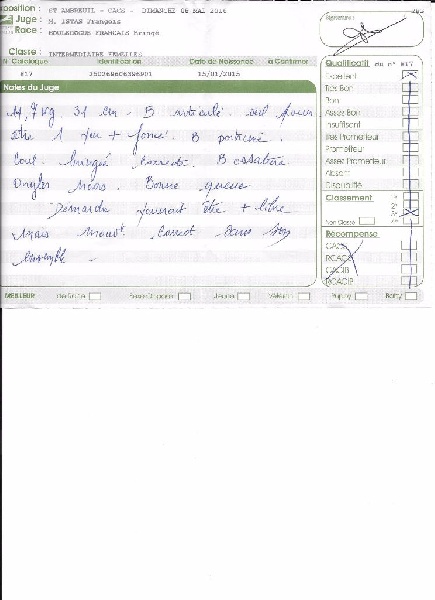 position : ST AMBREUIL - CACS - DIMANCHE 08 MAI 2016
Juge : M. ISTAS François
Race : BOULEDOGUE FRANCAIS Bringé
Signature
Classe : INTERMEDIAIRE FEMELLES
N Catalogue Identification Date de Naissance à Confirmer
#17 15/01/2015
Qualificatif du n° #17
Notes du Juge
Excellent
Très Bon
Bon
Assez Bon
Insuffisant
Très Prometteur
Prometteur
Assez Prometteur
Absent
Disqualifié
11,7 kg 31 cm - B articulé oeil pourr
être 1 peu + foncé. B poitrine
Coul. bringé correcte. B ossature
Ongles noirs. Bonne queue
Démarche pourrait être + libre
Mais mouvt correct dans
ensemble -
Classement
1er
2e
3e
4e
Non Classé
Récompense
CACS
RCACS
CACIB
RCACIB
MEILLEUR de Race Sexe Opposé Jeune Vétéran Puppy Baby